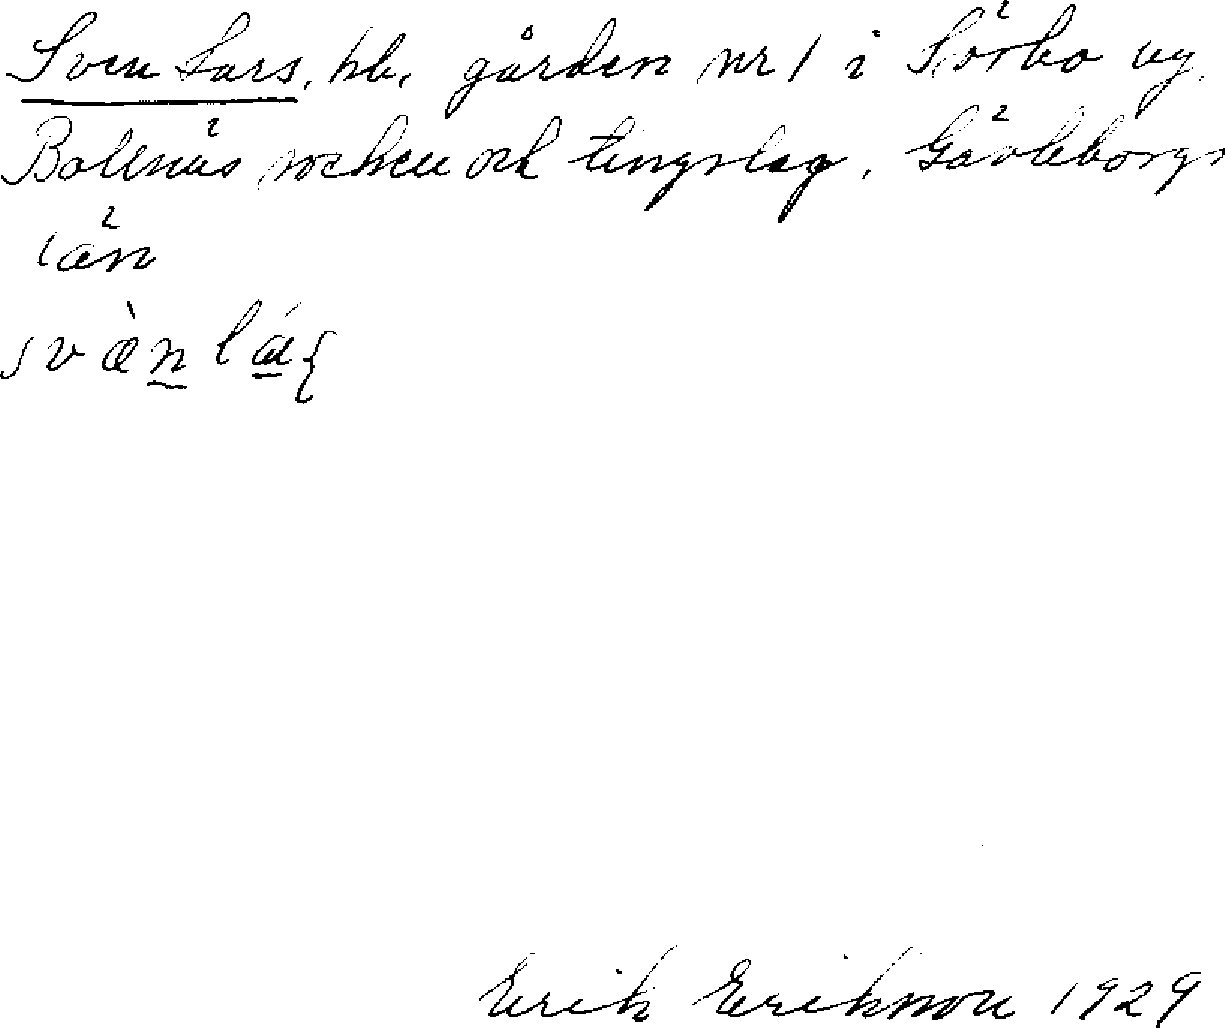 Sven Lars, hb. gården nr 1 i Sörbo by.
Bollnäs socken och tingslag, Gävleborgs
län
svæ̀n lá
Erik Erikson 1929